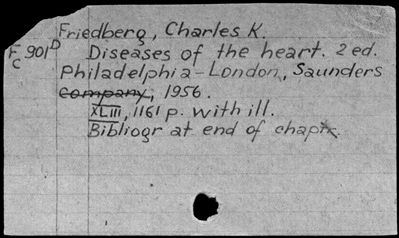 Friedberg, Charles K.
FC 901D Diseases of the heart. 2 ed.
Philadelphia-London, Saunders
company, 1956.
XLIII, 1161 p. with ill.
Bibliogr at end of chaptr.